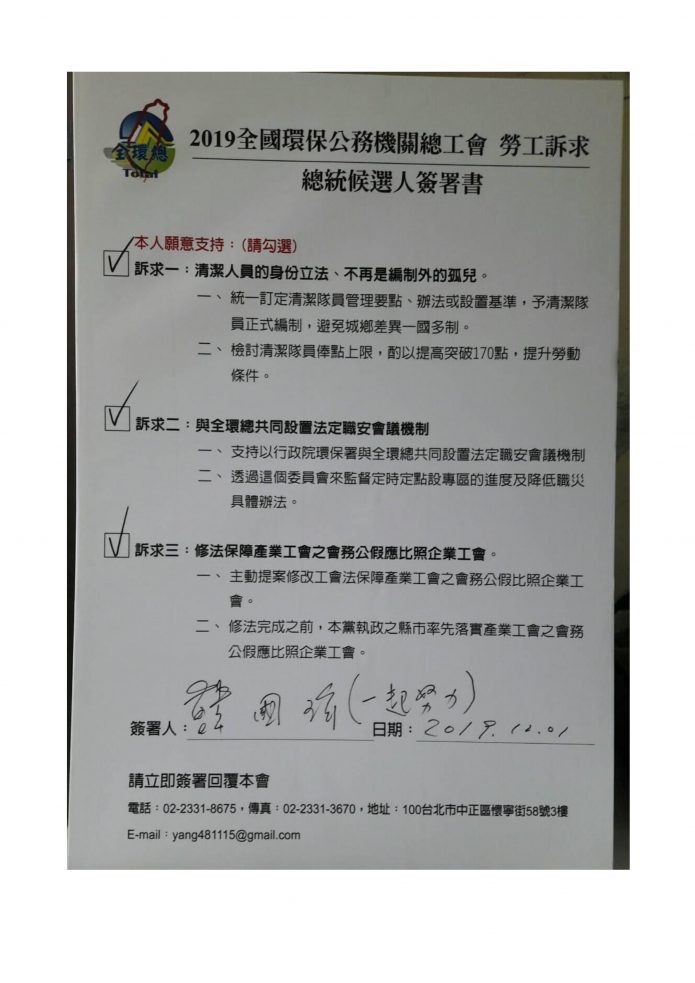 全環總
Total
2019全國環保公務機關總工會 勞工訴求
總統候選人簽署書
本人願意支持：(請勾選)
訴求一：清潔人員的身份立法、不再是編制外的孤兒。
一、 統一訂定清潔隊員管理要點、辦法或設置基準，予清潔隊
員正式編制，避免城鄉差異一國多制。
二、 檢討清潔隊員俸點上限，酌以提高突破170點，提升勞動
條件。
訴求二：與全環總共同設置法定職安會議機制
一、 支持以行政院環保署與全環總共同設置法定職安會議機制
二、 透過這個委員會來監督定時定點設專區的進度及降低職災
具體辦法。
訴求三：修法保障產業工會之會務公假應比照企業工會。
一、 主動提案修改工會法保障產業工會之會務公假比照企業工
會。
二、 修法完成之前，本黨執政之縣市率先落實產業工會之會務
公假應比照企業工會。
簽署人：韓國瑜(一起努力) 日期：2019.12.01
請立即簽署回覆本會
電話：02-2331-8675，傳真：02-2331-3670，地址：100台北市中正區懷寧街58號3樓
E-mail：yang481115@gmail.com